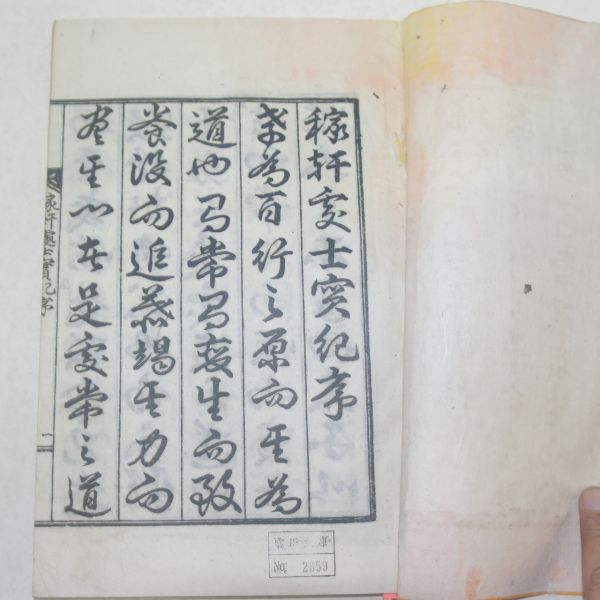 稼軒處士實紀序
孝爲百行之原而其爲
道也有常有變生而致
養沒而追慕竭其力而
盡其心者是處常之道
稼軒處士實紀序
一
No. 2859